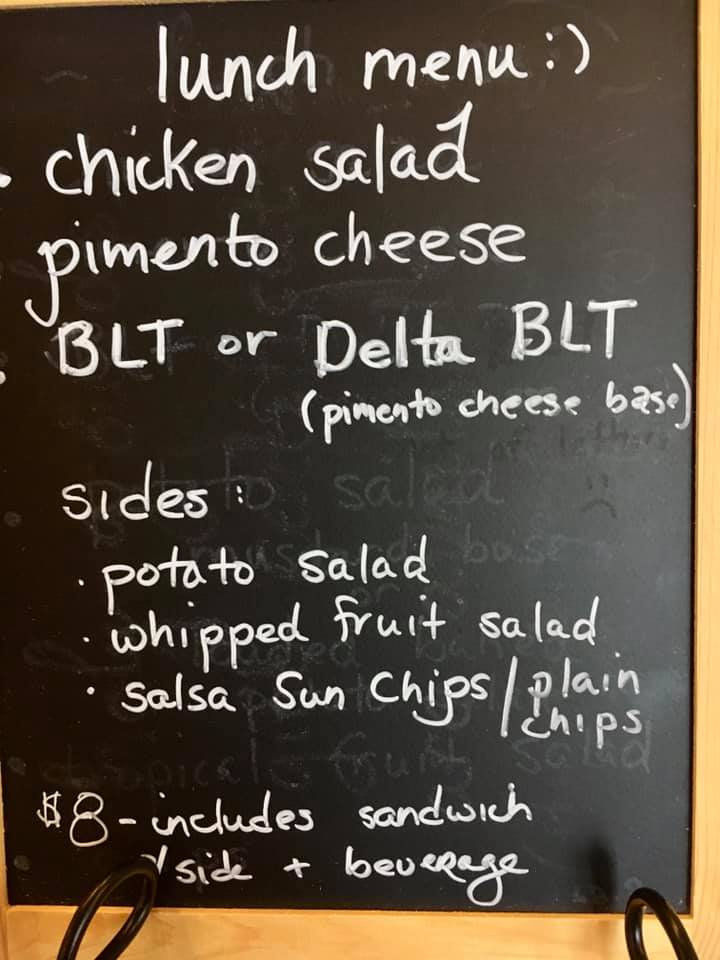 lunch menu :)
• chicken salad
pimento cheese
• BLT or Delta BLT
(pimento cheese base)
sides:
• potato salad
• whipped fruit salad
• salsa Sun Chips / plain chips
$8 - includes sandwich
/side + beverage